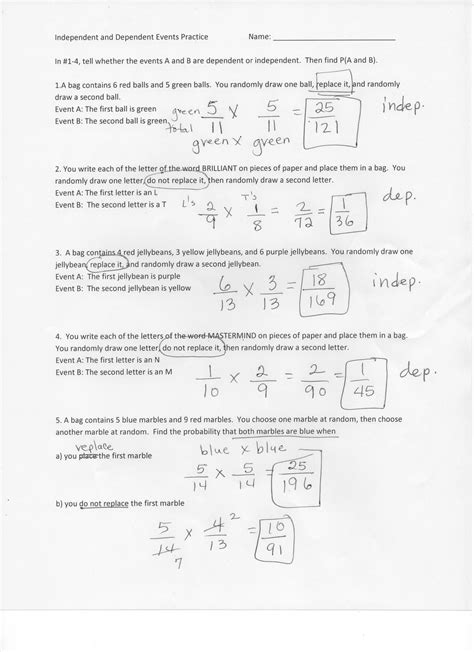 Independent and Dependent Events Practice Name:
In #1-4, tell whether the events A and B are dependent or independent. Then find P(A and B).
1.A bag contains 6 red balls and 5 green balls. You randomly draw one ball, replace it, and randomly
draw a second ball.
Event A: The first ball is green
Event B: The second ball is green
green 5/total 11 x 5/11 = 25/121 indep.
green x green
2. You write each of the letter of the word BRILLIANT on pieces of paper and place them in a bag. You
randomly draw one letter, do not replace it, then randomly draw a second letter.
Event A: The first letter is an L
Event B: The second letter is a T
L's 2/9 x T's 1/8 = 2/72 = 1/36 dep.
3. A bag contains 4 red jellybeans, 3 yellow jellybeans, and 6 purple jellybeans. You randomly draw one
jellybean, replace it, and randomly draw a second jellybean.
Event A: The first jellybean is purple
Event B: The second jellybean is yellow
6/13 x 3/13 = 18/169 indep.
4. You write each of the letters of the word MASTERMIND on pieces of paper and place them in a bag.
You randomly draw one letter, do not replace it, then randomly draw a second letter.
Event A: The first letter is an N
Event B: The second letter is an M
1/10 x 2/9 = 2/90 = 1/45 dep.
5. A bag contains 5 blue marbles and 9 red marbles. You choose one marble at random, then choose
another marble at random. Find the probability that both marbles are blue when
replace
a) you place the first marble
blue x blue
5/14 x 5/14 = 25/196
b) you do not replace the first marble
5/14 x 4/13 = 10/91
2
7